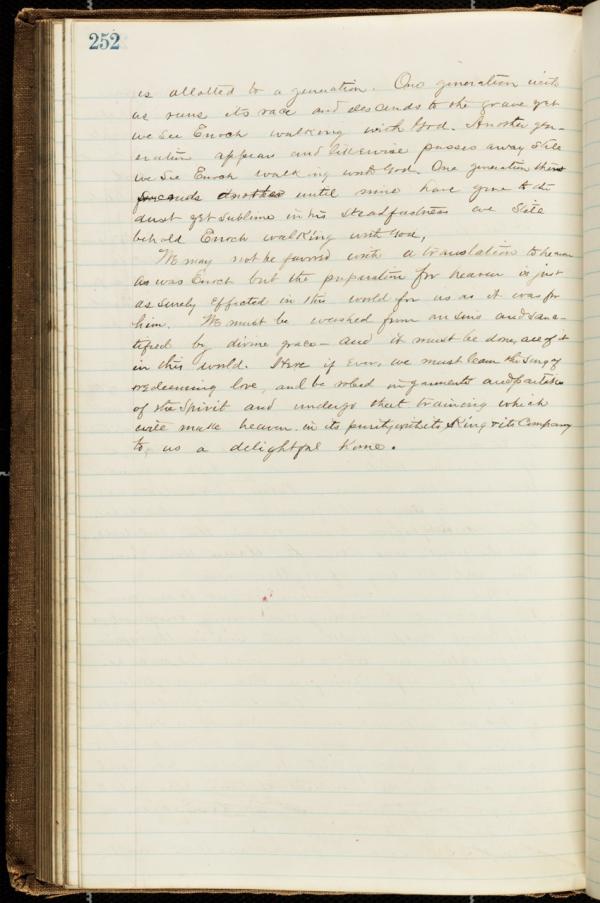 252
is allotted to a generation. One generation
as runs its race and descends to the grave yet
we see Enoch walking with God. Another gen-
eration appears and likewise passes away still
we see Enoch walking with God. One generation
succeeds another until nine have gone to the
dust yet sublime in his steadfastness we still
behold Enoch walking with God,
We may not be favored with a translation to heaven
as was Enoch but the preparation for heaven is just
as surely effected in this world for us as it was for
him. We must be washed from our sins and sanc-
tified by divine grace - and it must be done, all of it
in this world. Here if ever, we must learn the song of
redeeming love, and be robed in garments and
of the Spirit and undergo that training which
will make heaven in its purity, with its King & its Company
to us a delightful home.